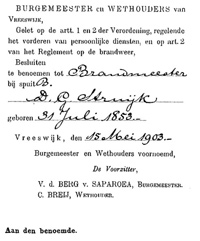 BURGEMEESTER en WETHOUDERS van
VREESWIJK,
Gelet op de artt. 1 en 2 der Verordening, regelende
het vorderen van persoonlijke diensten, en op art. 2
van het Reglement op de brandweer,
Besluiten
te benoemen tot Brandmeester
bij spuit B.
D. C. Struijk
geboren 31 Juli 1853.-
Vreeswijk, den 15 Mei 1903.-
Burgemeester en Wethouders voornoemd,
De Voorzitter,
V. d. BERG v. SAPAROEA, BURGEMEESTER.
C. BREIJ, WETHOUDER.
Aan den benoemde.